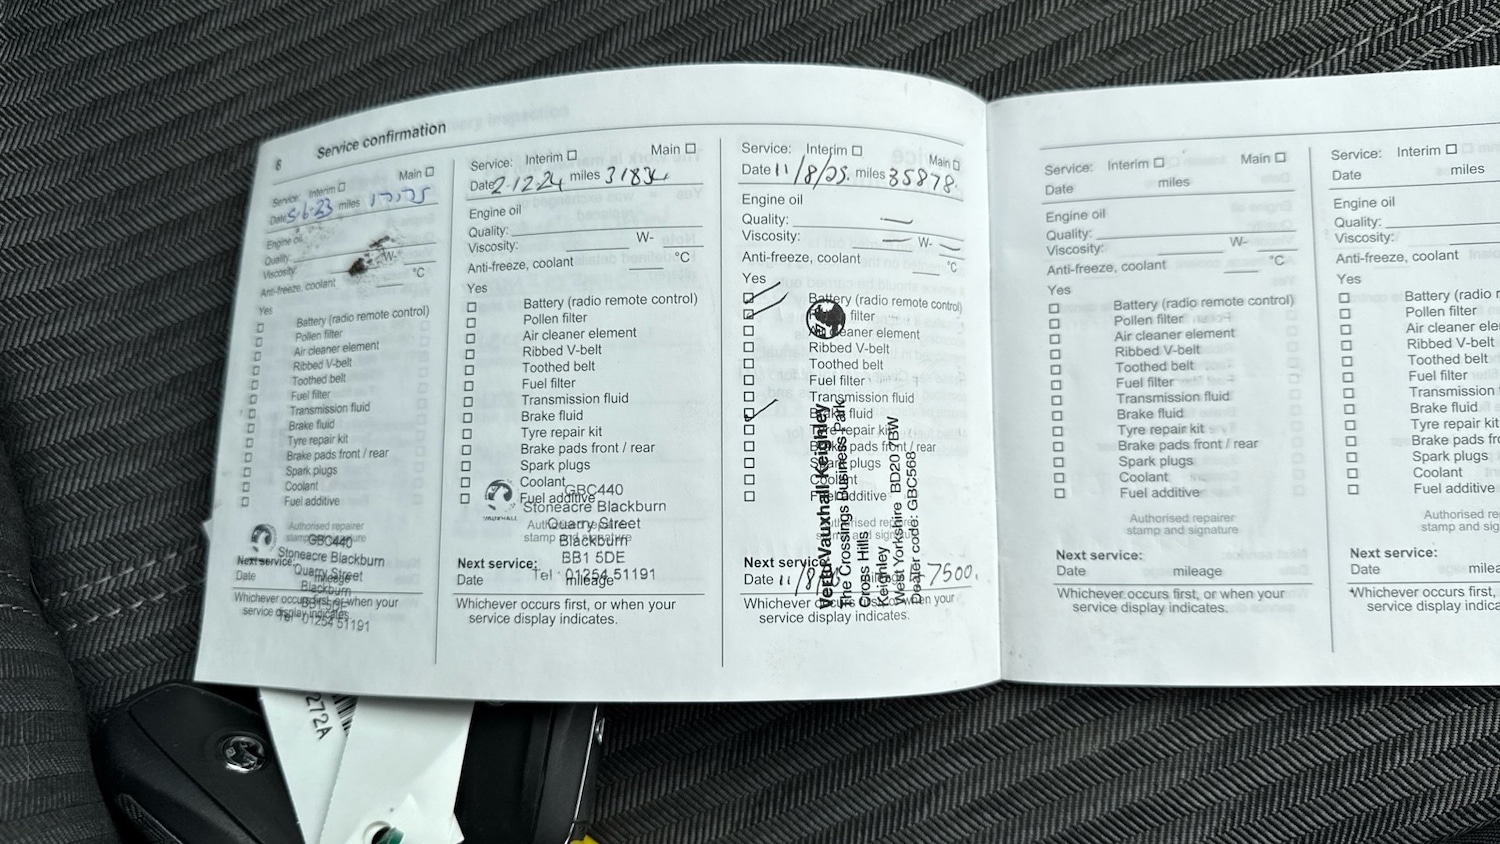 8 Service confirmation
Service: Interim Main
Date 5.6.23 miles
Engine oil
Quality:
Viscosity: W-
Anti-freeze, coolant °C
Yes
Battery (radio remote control)
Pollen filter
Air cleaner element
Ribbed V-belt
Toothed belt
Fuel filter
Transmission fluid
Brake fluid
Tyre repair kit
Brake pads front / rear
Spark plugs
Coolant
Fuel additive
Authorised repairer
stamp and signature
GBC440
Stoneacre Blackburn
Quarry Street
Blackburn
BB1 5DE
Tel : 01254 51191
Next service:
Date mileage
Whichever occurs first, or when your
service display indicates.
Service: Interim Main
Date 2.12.24 miles 31834
Engine oil
Quality:
Viscosity: W-
Anti-freeze, coolant °C
Yes
Battery (radio remote control)
Pollen filter
Air cleaner element
Ribbed V-belt
Toothed belt
Fuel filter
Transmission fluid
Brake fluid
Tyre repair kit
Brake pads front / rear
Spark plugs
Coolant
Fuel additive
VAUXHALL
Authorised repairer
stamp and signature
GBC440
Stoneacre Blackburn
Quarry Street
Blackburn
BB1 5DE
Tel : 01254 51191
Next service:
Date mileage
Whichever occurs first, or when your
service display indicates.
Service: Interim Main
Date 11/8/25. miles 35878.
Engine oil
Quality:
Viscosity: W-
Anti-freeze, coolant °C
Yes
Battery (radio remote control)
filter
Air cleaner element
Ribbed V-belt
Toothed belt
Fuel filter
Transmission fluid
Brake fluid
Tyre repair kit
Brake pads front / rear
Spark plugs
Coolant
Fuel additive
Authorised repairer
stamp and signature
Vertu Vauxhall Keighley
The Crossings Business Park
Cross Hills
Keighley
West Yorkshire BD20 7BW
Dealer code: GBC568
Next service:
Date 11/8 mileage 7500.
Whichever occurs first, or when your
service display indicates.
Service: Interim Main
Date miles
Engine oil
Quality:
Viscosity: W-
Anti-freeze, coolant °C
Yes
Battery (radio remote control)
Pollen filter
Air cleaner element
Ribbed V-belt
Toothed belt
Fuel filter
Transmission fluid
Brake fluid
Tyre repair kit
Brake pads front / rear
Spark plugs
Coolant
Fuel additive
Authorised repairer
stamp and signature
Next service:
Date mileage
Whichever occurs first, or when your
service display indicates.
Service: Interim
Date miles
Engine oil
Quality:
Viscosity:
Anti-freeze, coolant
Yes
Battery (radio r
Pollen filter
Air cleaner ele
Ribbed V-belt
Toothed belt
Fuel filter
Transmission
Brake fluid
Tyre repair kit
Brake pads fro
Spark plugs
Coolant
Fuel additive
Authorised re
stamp and signa
Next service:
Date milea
Whichever occurs first,
service display indicates
272A